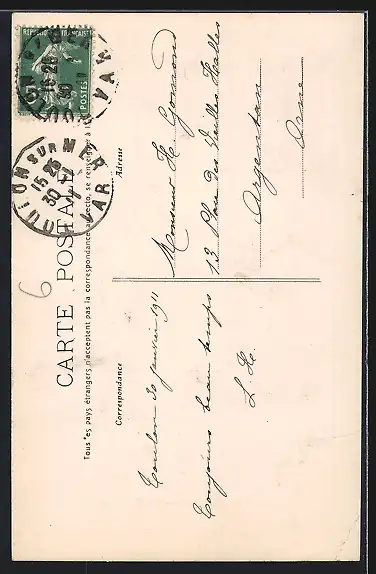 RÉPUBLIQUE FRANÇAISE
POSTES
TOULON SUR MER
15-25
30 -1
VAR
6
CARTE POSTALE
Tous les pays étrangers n'acceptent pas la correspondance au recto, se renseigner à la
Correspondance
Adresse
Toulon 30 janvier 1911
Toujours beau temps
L. H.
Monsieur H.
13 Place des Vieilles Halles
Argentan
Orne